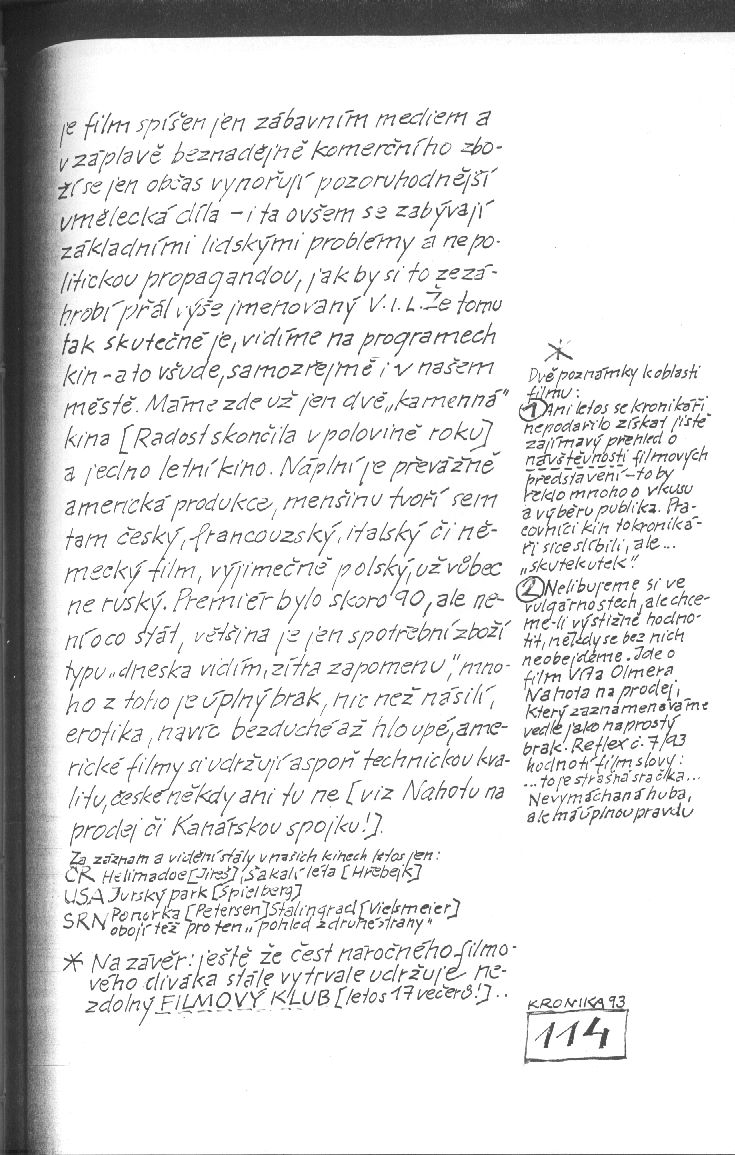 je film spíšen jen zábavním mediem a
v záplavě beznadějně komerčního zbo-
ží se jen občas vynořují pozoruhodnější
umělecká díla – i ta ovšem se zabývají
základními lidskými problémy a nepo-
litickou propagandou, jak by si to ze zá-
hrobí přál výše jmenovaný V.I.L. Že tomu
tak skutečně je, vidíme na programech
kin – a to všude, samozřejmě i v našem
městě. Máme zde už jen dvě „kamenná"
kina [Radost skončila v polovině roku]
a jedno letní kino. Náplní je převážně
americká produkce, menšinu tvoří sem
tam český, francouzský, italský či ně-
mecký film, výjimečně polský, už vůbec
ne ruský. Premiér bylo skoro 90, ale ne-
ní o co stát, většina je jen spotřební zboží
typu „dneska vidím, zítra zapomenu", mno-
ho z toho je úplný brak, nic než násilí,
erotika, navíc bezduché až hloupé, ame-
rické filmy si udržují aspoň technickou kva-
litu, české někdy ani tu ne [viz Nahotu na
prodej či Kanárskou spojku!].
Za záznam a vidění stály v našich kinech letos jen:
ČR Helimadoe [Jireš], Šakalí léta [Hřebejk]
USA Jurský park [Spielberg]
SRN Ponorka [Petersen] Stalingrad [Vielsmeier]
obojí též pro ten „pohled z druhé strany"
* Na závěr: ještě že čest náročného filmo-
vého diváka stále vytrvale udržuje ne-
zdolný FILMOVÝ KLUB [letos 17 večerů!]..
*
Dvě poznámky k oblasti
filmu:
1 Ani letos se kronikáři
nepodařilo získat jistě
zajímavý přehled o
návštěvnosti filmových
představení – to by
řeklo mnoho o vkusu
a výběru publika. Pra-
covníci kin to kroniká-
ři sice slíbili, ale...
„skutek utek".
2 Nelibujeme si ve
vulgárnostech, ale chce-
me-li výstižně hodno-
tit, někdy se bez nich
neobejdeme. Jde o
film Víta Olmera
Nahota na prodej,
který zaznamenáváme
vedle jako naprostý
brak. Reflex č. 7/93
hodnotí film slovy:
...to je strašná sračka...
Nevymáchaná huba,
ale má úplnou pravdu
KRONIKA 93
114